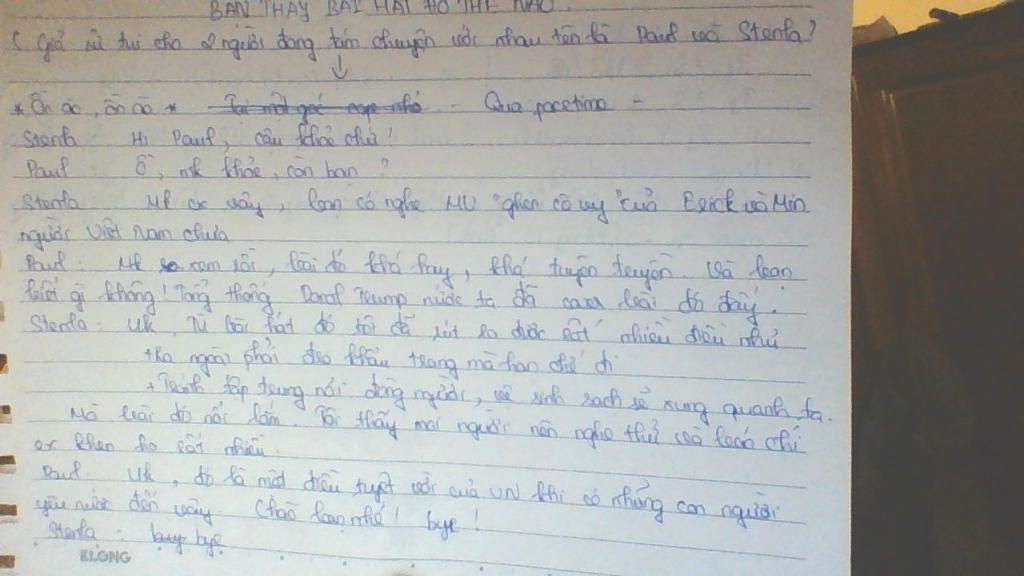 BẠN THẤY BÀI HÁT ĐÓ THẾ NÀO
Giả sử tui cho 2 người đang tám chuyện với nhau tên là Paul và Stenfa?
↓
* Ồn ào, ồn ào * - Qua pacetime -
Stenfa: Hi Paul, cậu khỏe chứ!
Paul: Ồ, mk khỏe, còn bạn?
Stenfa: Mk cx vậy, bạn có nghe MV "ghen cô vy" của Erick và Min
người Việt Nam chưa
Paul: Mk xem rồi, bài đó khá hay, khá tuyên truyền. Và bạn
biết gì không! Tổng thống Trump nước ta đã bài đó đấy.
Stenfa: Uk, Từ bài hát đó tôi đã rút ra được rất nhiều điều như
+ Ra ngoài phải đeo khẩu trang mà hạn chế đi
+ Tránh tập trung nơi đông người, vệ sinh sạch sẽ xung quanh ta.
Mà bài đó nổi lắm. Tôi thấy mọi người nên nghe thử và báo chí
cx khen họ rất nhiều
Paul: Uk, đó là một điều tuyệt vời của VN khi có những con người
yêu nước đến vậy. Chào bạn nhé! bye!
Stenfa: bye
KLONG